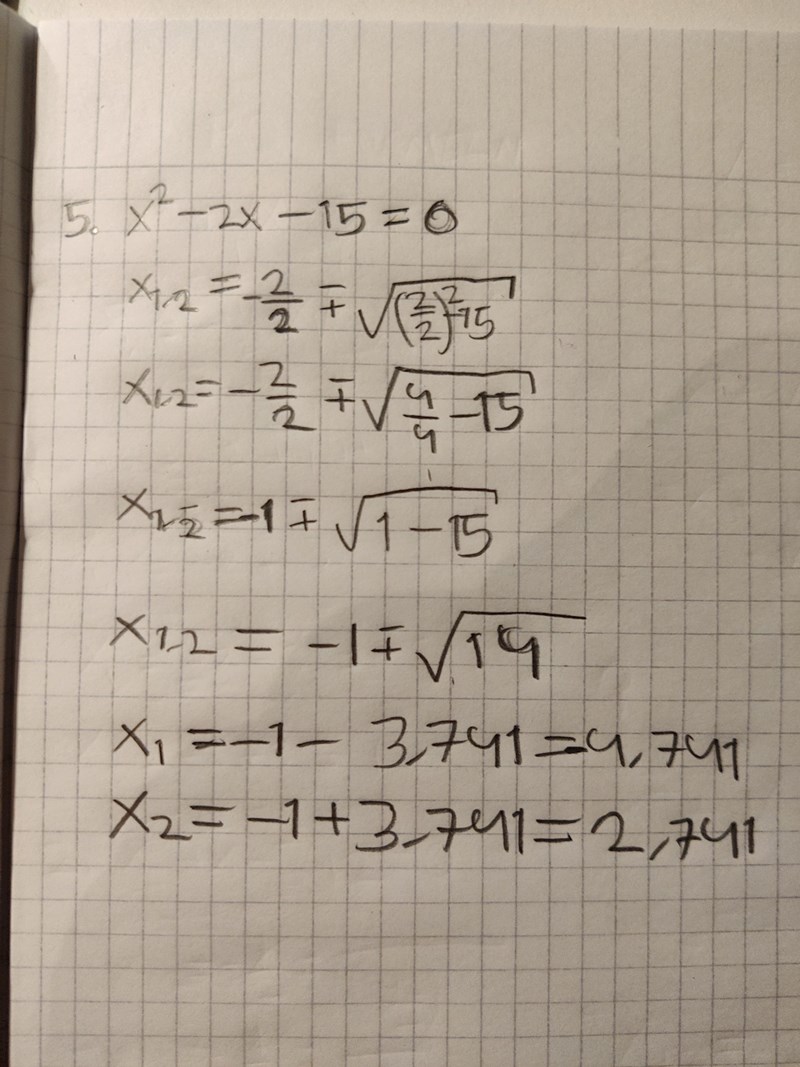 5. x² - 2x - 15 = 0
x₁,₂ = -2/2 ∓ √((2/2)² - 15)
x₁,₂ = -2/2 ∓ √(4/4 - 15)
x₁,₂ = -1 ∓ √(1 - 15)
x₁,₂ = -1 ∓ √14
x₁ = -1 - 3,741 = 4,741
x₂ = -1 + 3,741 = 2,741